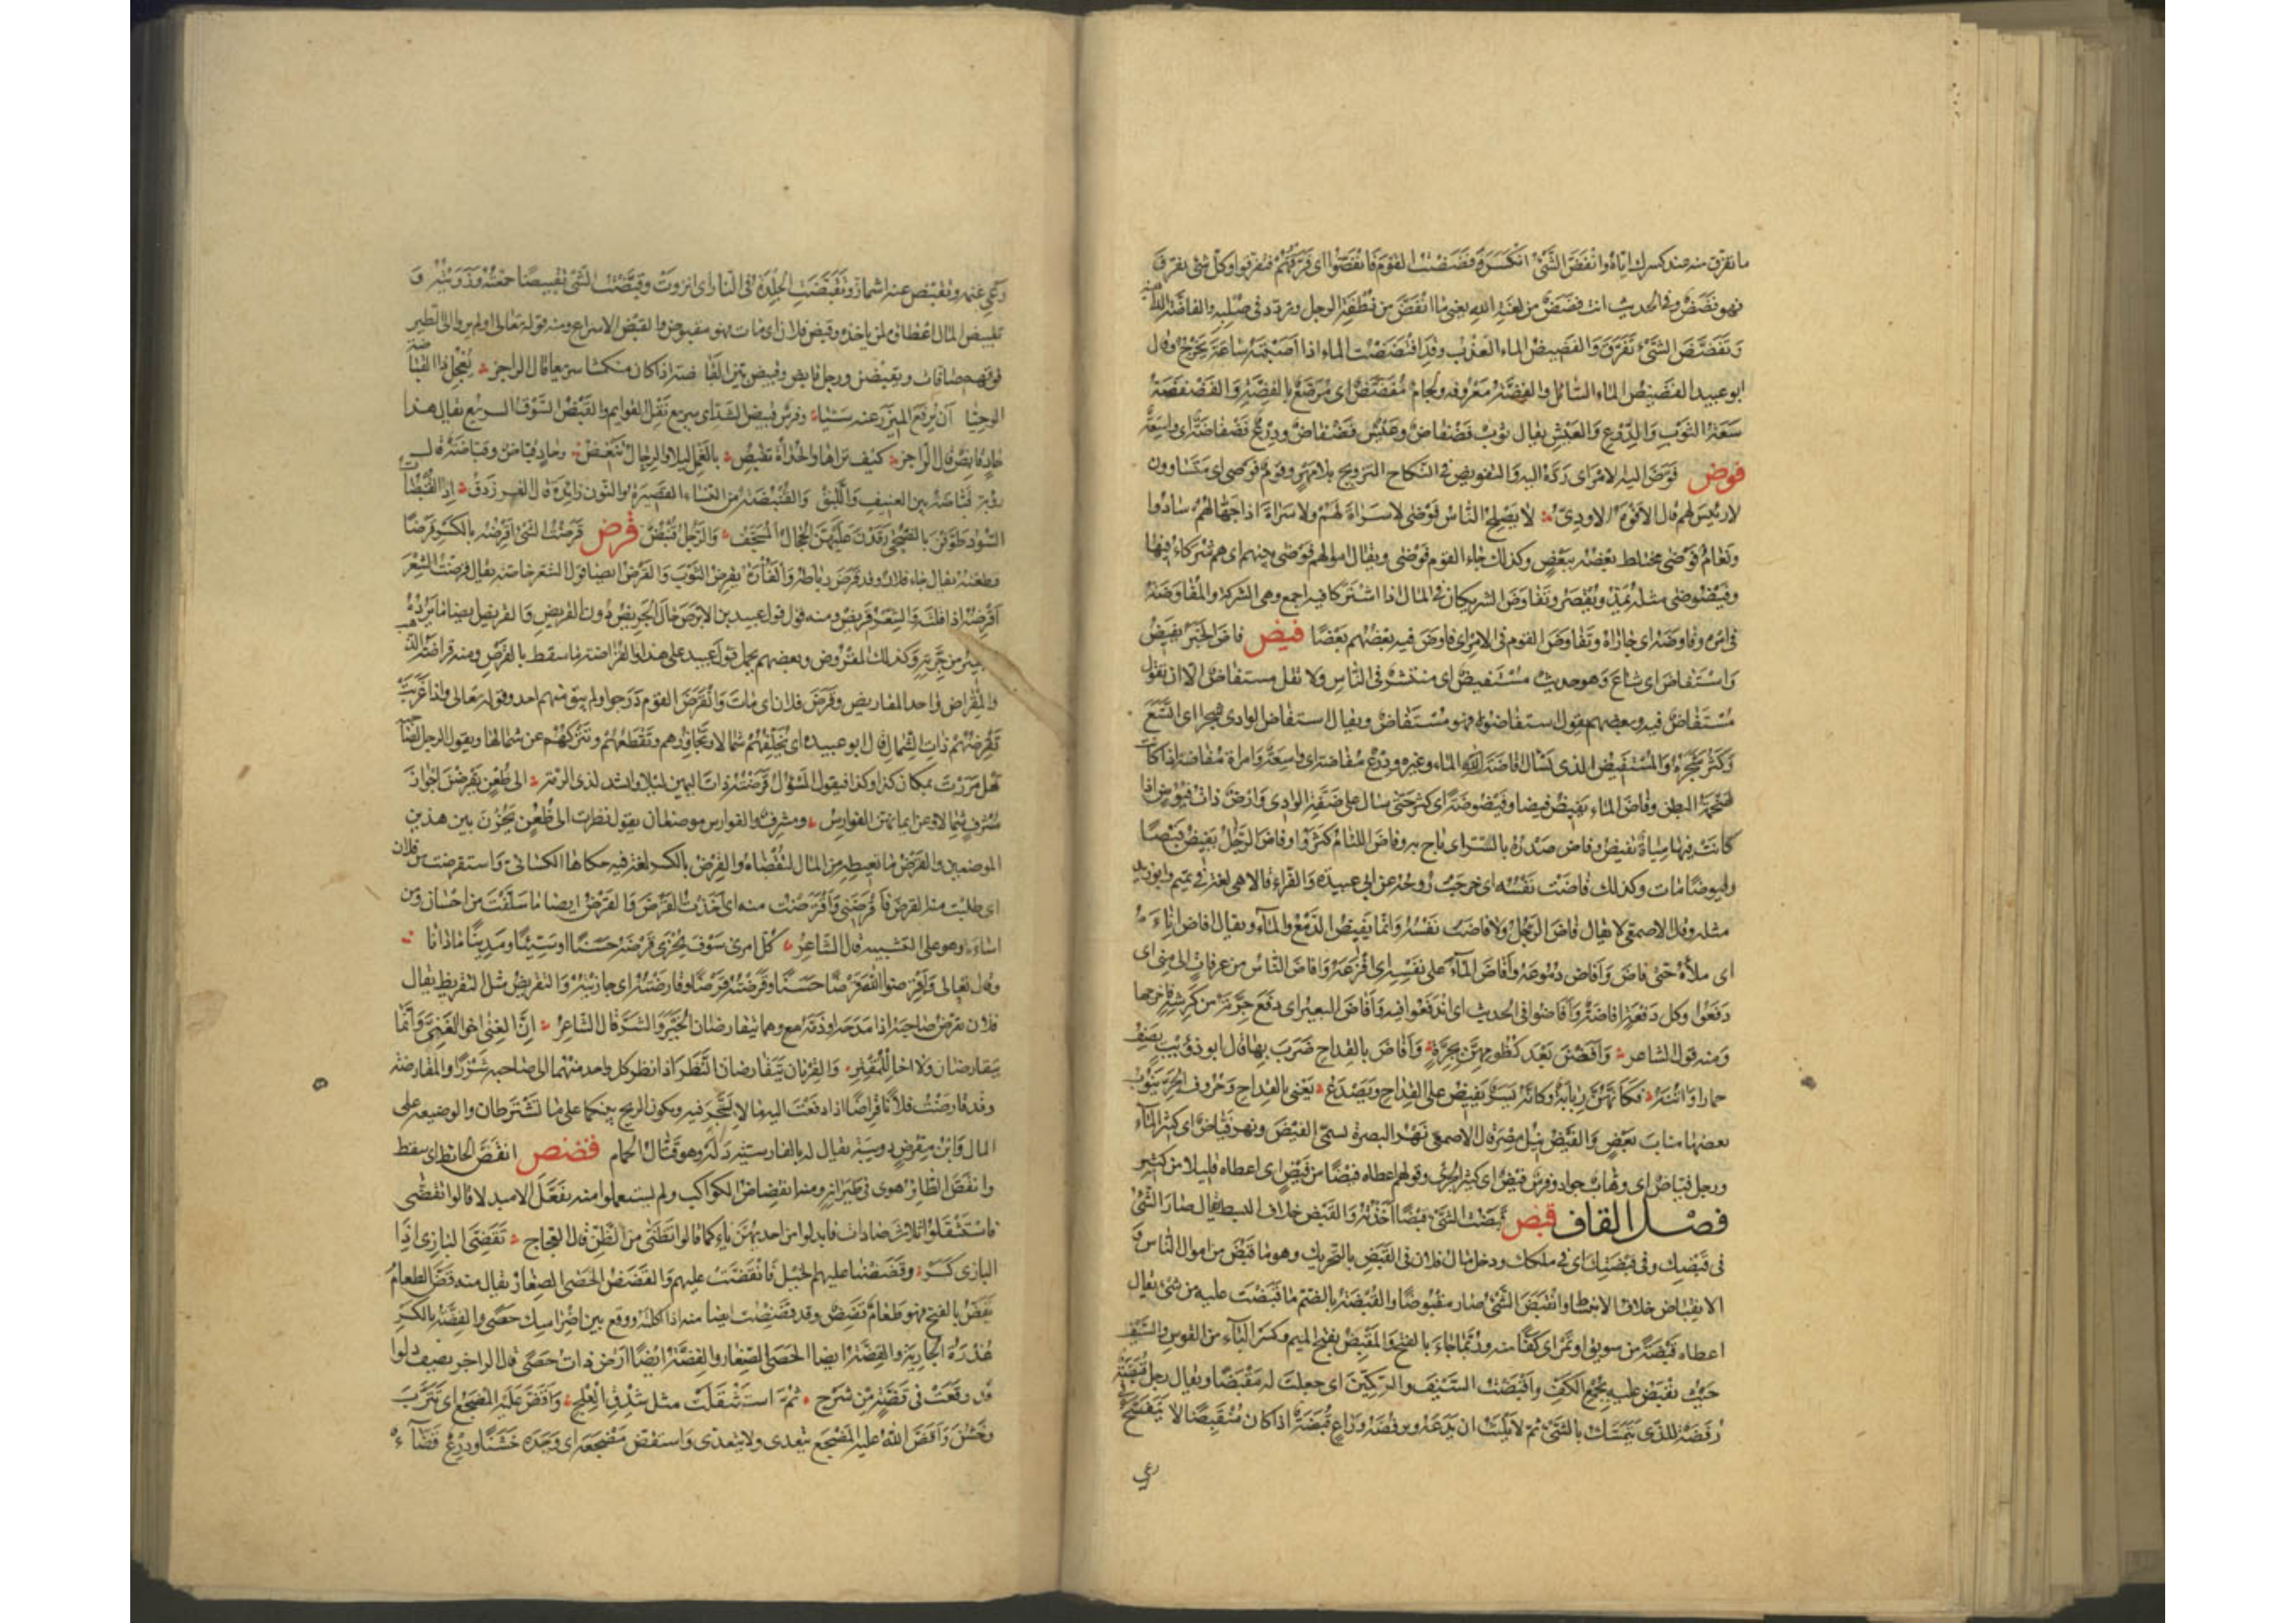 ما تفرق منه عند كسرك اياه وانفض الشئ انكسر وفضضت القوم فانفضوا اى فرقتهم فتفرقوا وكل شئ تفرق
فهو فضض وفى الحديث انت فضض من لعنة الله يعنى ما انفض من نطفة الرجل وتردد فى صلبه والفاضة الداهية
وتفضض الشئ تفرق والفضيض الماء العذب وقد افتضضت الماء اذا اصبته ساعة يخرج وقال
ابو عبيد الفضيض الماء السائل والفضة معروفة ولجام مفضض اى مرصع بالفضة والفضفضة
سعة الثوب والدرع والعيش يقال ثوب فضفاض وعيش فضفاض ودرع فضفاضة اى واسعة
فوض فوض اليه الامر اى رده اليه والتفويض فى النكاح التزويج بلا مهر وقوم فوضى اى متساوون
لا رئيس لهم قال الافوه الاودى لا يصلح الناس فوضى لا سراة لهم ولا سراة اذا جهالهم سادوا
ونعام فوضى مختلط بعضه ببعض وكذلك جاء القوم فوضى ويقال اموالهم فوضى بينهم اى هم شركاء فيها
وفيضوضى مثله يمد ويقصر وتفاوض الشريكان فى المال اذا اشتركا فيه اجمع وهى الشركة والمفاوضة
فى امره وفاوضه اى جاراه وتفاوض القوم فى الامر اى فاوض فيه بعضهم بعضا فيض فاض الخبر يفيض
واستفاض اى شاع وهو حديث مستفيض اى منتشر فى الناس ولا تقل مستفاض الا ان تقول
مستفاض فيه وبعضهم يقول استفاضوه فهو مستفاض ويقال استفاض الوادى شجرا اى اتسع
وكثر شجره والمستفيض الذى يسأل افاضة الماء وغيره ودرع مفاضة اى واسعة وامراة مفاضة اذا كانت
ضخمة البطن وفاض الماء يفيض فيضا وفيضوضة اى كثر حتى سال على ضفة الوادى وارض ذات فيوض اذا
كانت فيها مياه تفيض وفاض صدره بالسر اى باح به وفاض اللئام كثروا وفاض الرجل يفيض فيضا
وفيوضا مات وكذلك فاضت نفسه اى خرجت روحه عن ابى عبيدة والفراء قالا هى لغة فى تميم وابو زيد
مثله وقال الاصمعى لا يقال فاض الرجل ولا فاضت نفسه وانما يفيض الدمع والماء ويقال افاض اناءه
اى ملأه حتى فاض وافاض دموعه وافاض الماء على نفسه اى افرغه وافاض الناس من عرفات الى منى اى
دفعوا وكل دفعة افاضة وافاضوا فى الحديث اى اندفعوا فيه وافاض البعير اى دفع جرته من كرشه فاخرجها
ومنه قول الشاعر وافضن بعد كظومهن بجرة وافاض بالقداح ضرب بها قال ابو ذؤيب يصف
حمارا واتنه فكأنهن ربابة وكأنه يسر يفيض على القداح ويصدع يعنى بالقداح وحروف الجر ينوب
بعضها مناب بعض والفيض نيل مصر قال الاصمعى نهر البصرة يسمى الفيض ونهر فياض اى كثير الماء
ورجل فياض اى وهاب جواد وفرس فيض اى كثير الجرى وقولهم اعطاه غيضا من فيض اى اعطاه قليلا من كثير
فصل القاف قبض قبضت الشئ قبضا اخذته والقبض خلاف البسط يقال صار الشئ
فى قبضك وفى قبضتك اى فى ملكك ودخل مال فلان فى القبض بالتحريك وهو ما قبض من اموال الناس و
الانقباض خلاف الانبساط وانقبض الشئ صار مقبوضا والقبضة بالضم ما قبضت عليه من شئ يقال
اعطاه قبضة من سويق او تمر اى كفا منه وربما جاء بالفتح والمقبض بفتح الميم وكسر الباء من القوس والسيف
حيث يقبض عليه بجمع الكف واقبضت السيف والسكين اى جعلت له مقبضا ويقال رجل قبضة
رفضة للذى يتمسك بالشئ ثم لا يلبث ان يدعه ويرفضه وراع قبضة اذا كان منقبضا لا يتفسح فى
رعى
رعى غنمه وتقبض عنه اشماز وتقبضت الجلدة فى النار اى انزوت وقبضت الشئ تقبيضا جمعته وزويته و
تقبيض المال اعطاؤه لمن ياخذه وقبض فلان اى مات فهو مقبوض والقبض الاسراع ومنه قوله تعالى اولم يروا الى الطير
فوقهم صافات ويقبضن ورجل قابض وقبيض بين القباضة اذا كان منكمشا سريعا قال الراجز يعجل ذا القباضة
الوحيا ان يرفع الميزر عنه شيا وفرس قبيض الشد اى سريع نقل القوايم والقبض السوق السريع يقال هذا
حاد قابض قال الراجز كيف تراها والحداة تقبض بالغمل ليلا والرجال تنغض وحاد قباض وقباضة قال
رؤبة قباضة بين العنيف واللبق والقنبضة من النساء القصيرة والنون زايدة قال الفرزدق اذا القنبضات
السود طوفن بالضحى رقدن عليهن الحجال المسجف والرجل قنبض قرض قرضت الشئ اقرضه بالكسر قرضا
قطعته يقال جاء فلان وقد قرض رباطه والفارة تقرض الثوب والقرض ايضا قول الشعر خاصة يقال قرضت الشعر
اقرضه اذا قلته والشعر قريض ومنه قول عبيد بن الابرص حال الجريض دون القريض والقريض ايضا ما يرده
البعير من جرته وكذلك المقروض وبعضهم يحمل قول عبيد على هذا والقراضة ما سقط بالقرض ومنه قراضة الذهب
والمقراض واحد المقاريض وقرض فلان اى مات وانقرض القوم درجوا ولم يبق منهم احد وقوله تعالى واذا غربت
تقرضهم ذات الشمال قال ابو عبيدة اى تخلفهم شمالا وتجاوزهم وتقطعهم وتتركهم عن شمالها ويقول الرجل لصاحبه
هل مررت بمكان كذا وكذا فيقول المسؤل قرضته ذات اليمين ليلا وانشد لذى الرمة الى ظعن يقرضن اجواز
مشرف شمالا وعن ايمانهن الفوارس ومشرف والفوارس موضعان يقول نظرت الى ظعن يجزن بين هذين
الموضعين والقرض ما تعطيه من المال لتقضاه والقرض بالكسر لغة فيه حكاها الكسائى واستقرضت من فلان
اى طلبت منه القرض فاقرضنى واقترضت منه اى اخذت القرض والقرض ايضا ما سلفت من احسان ومن
اساءة وهو على التشبيه قال الشاعر كل امرئ سوف يجزى قرضه حسنا او سيئا ومدينا ما دانا
وقال تعالى واقرضوا الله قرضا حسنا وقرضته قرضا وقارضته اى جازيته والتقريض مثل التقريظ يقال
فلان يقرض صاحبه اذا مدحه او ذمه وهما يتقارضان الخير والشر قال الشاعر ان الغنى اخو الغنى وانما
يتقارضان ولا اخا للمقتر والقرنان يتقارضان النظر اذا نظر كل واحد منهما الى صاحبه شزرا والمقارضة
وقد قارضت فلانا قراضا اذا دفعت اليه مالا ليتجر فيه ويكون الربح بينكما على ما تشترطان والوضيعة على
المال وابن مقرض دويبة يقال له بالفارسية دله وهو قتال الحمام قضض انقض الحائط اى سقط
وانقض الطائر هوى فى طيرانه ومنه انقضاض الكواكب ولم يستعملوا منه تفعل الا مبدلا قالوا تقضى
فاستثقلوا ثلاث ضادات فابدلوا من احديهن ياء كما قالوا تظنى من الظن قال العجاج تقضى البازى اذا
البازى كسر وقضضنا عليهم الخيل فانقضت عليهم والقضض الحصى الصغار يقال منه قض الطعام
يقض بالفتح فهو طعام قضض وقد قضضت ايضا منه اذا اكلته ووقع بين اضراسك حصى والقضة بالكسر
عذرة الجارية والقضة ايضا الحصى الصغار والقضة ايضا ارض ذات حصى قال الراجز يصف دلوا
قد وقعت فى قضة من شرج ثم استقلت مثل شدق العلج واقض عليه المضجع اى تترب
وخشن واقض الله عليه المضجع يتعدى ولا يتعدى واستقض مضجعه اى وجده خشنا ودرع قضاء